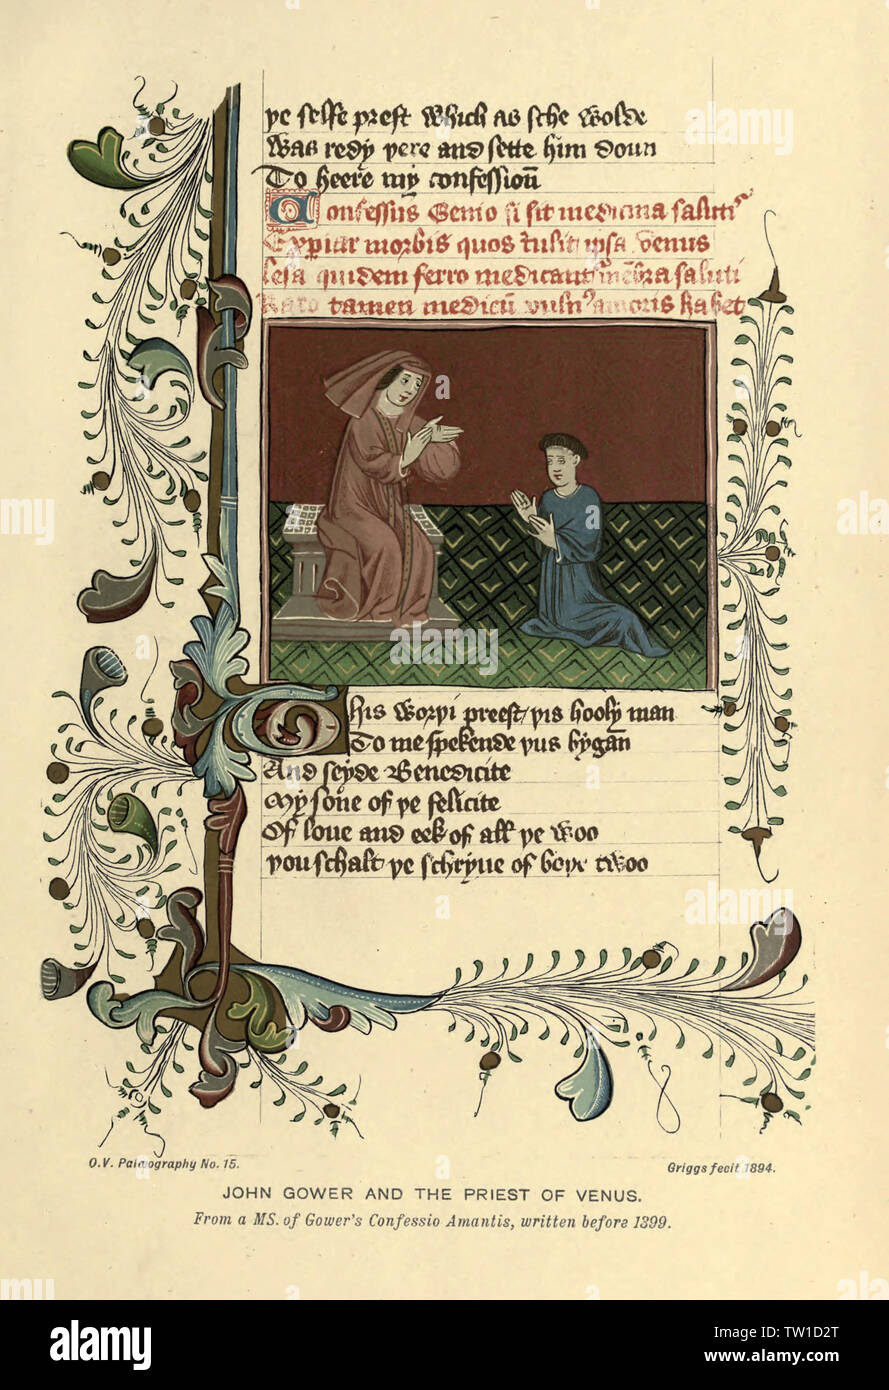 þe selfe prest which as sche wolde
Was redy þere and sette him doun
To heere my confessioñ
Confessus Genio si sit medicina saluti⁹
Exꝑiar morbis quos tulit ipsa venus
Lesa quidem ferro medicant᷑ mēbra saluti
Raro tamen medicū vuln⁹ amoris habet
This worþi preest / þis hooly man
To me spekende þus bygan
And seyde Benedicite
My sone of þe felicite
Of loue and eek of all þe woo
þou schalt þe schryue of boþe twoo
O.V. Palæography No. 15.
Griggs fecit 1894.
JOHN GOWER AND THE PRIEST OF VENUS.
From a MS. of Gower's Confessio Amantis, written before 1399.
alamy
Image ID: TW1D2T
www.alamy.com